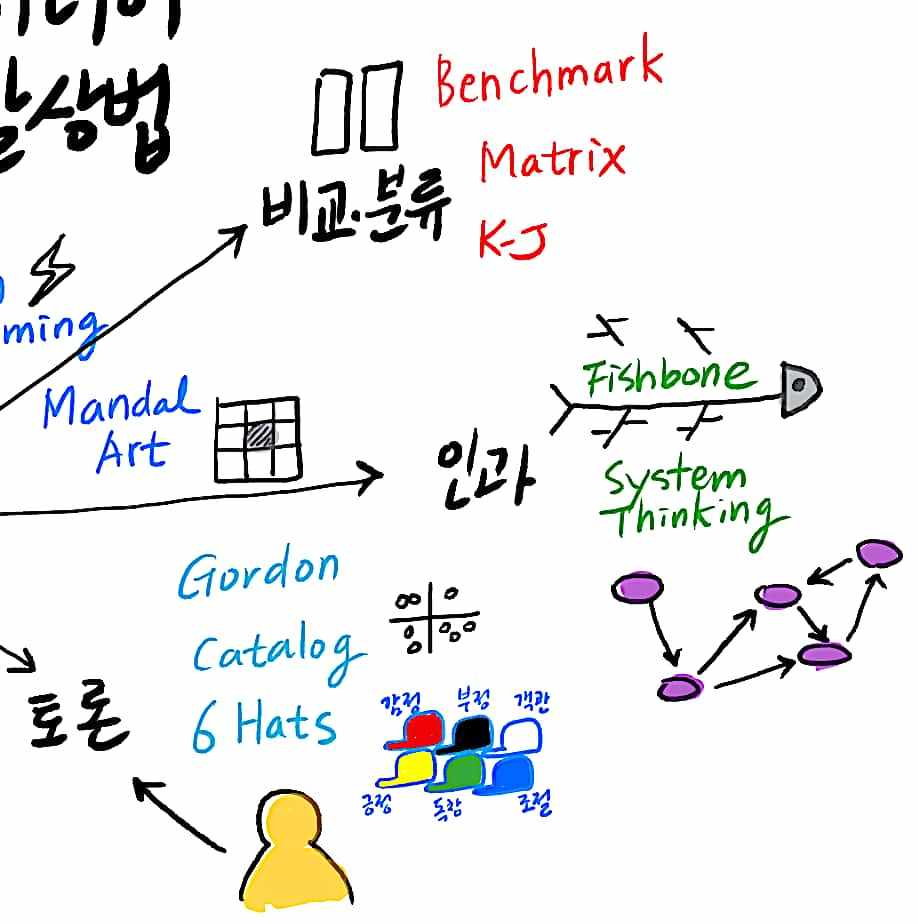 발상법
Benchmark
Matrix
K-J
비교·분류
ming
Mandal
Art
인과
Fishbone
System
Thinking
Gordon
Catalog
6 Hats
토론
감정 부정 객관
긍정 독창 조절